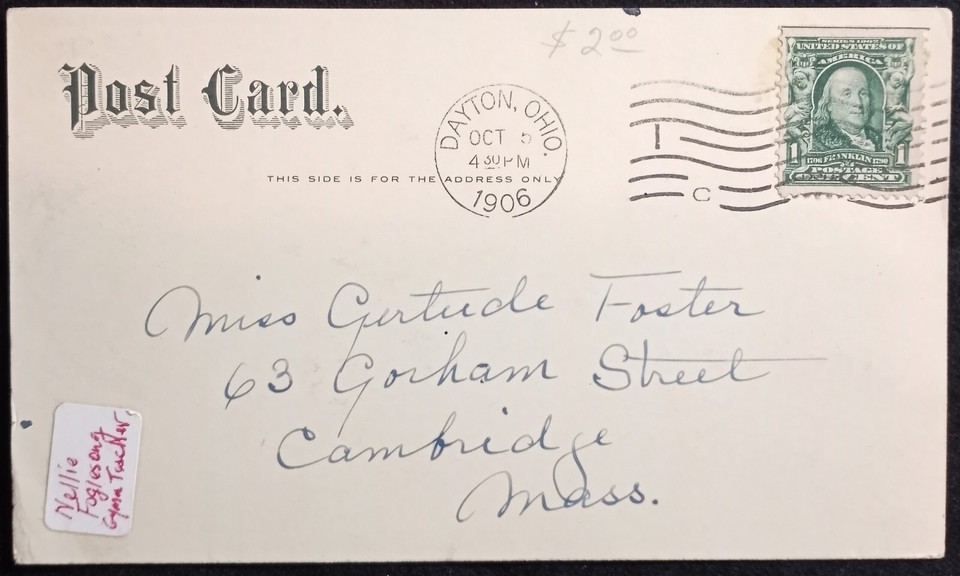 $2.00
Post Card.
THIS SIDE IS FOR THE ADDRESS ONLY
DAYTON, OHIO.
OCT 5
4 30 PM
1906
1
C
SERIES 1902
UNITED STATES OF
AMERICA
1 1706 FRANKLIN 1790 1
POSTAGE
ONE CENT
Miss Gertrude Foster
63 Gorham Street
Cambridge
Mass.
Nellie
Foglesong
Gym